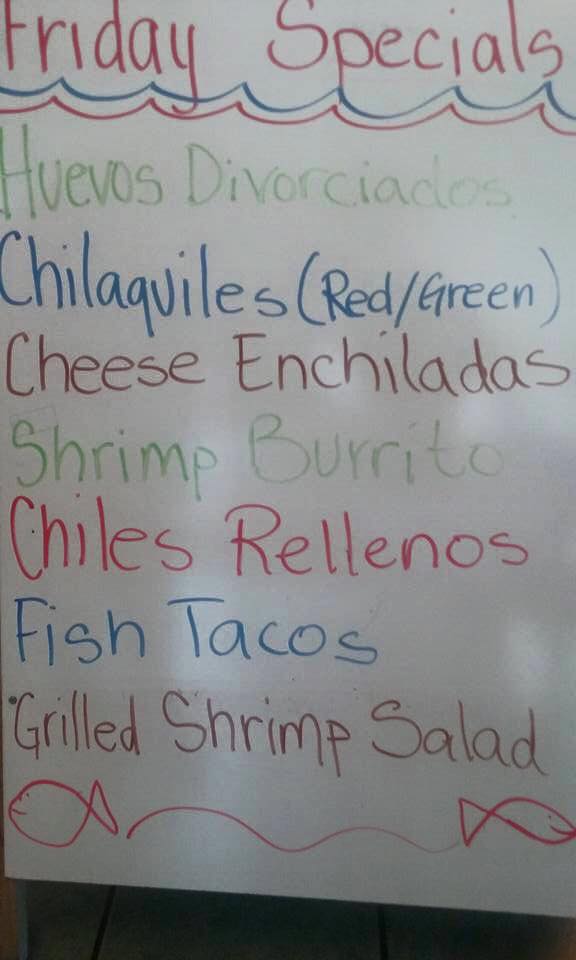 Friday Specials
Huevos Divorciados
Chilaquiles (Red/Green)
Cheese Enchiladas
Shrimp Burrito
Chiles Rellenos
Fish Tacos
Grilled Shrimp Salad